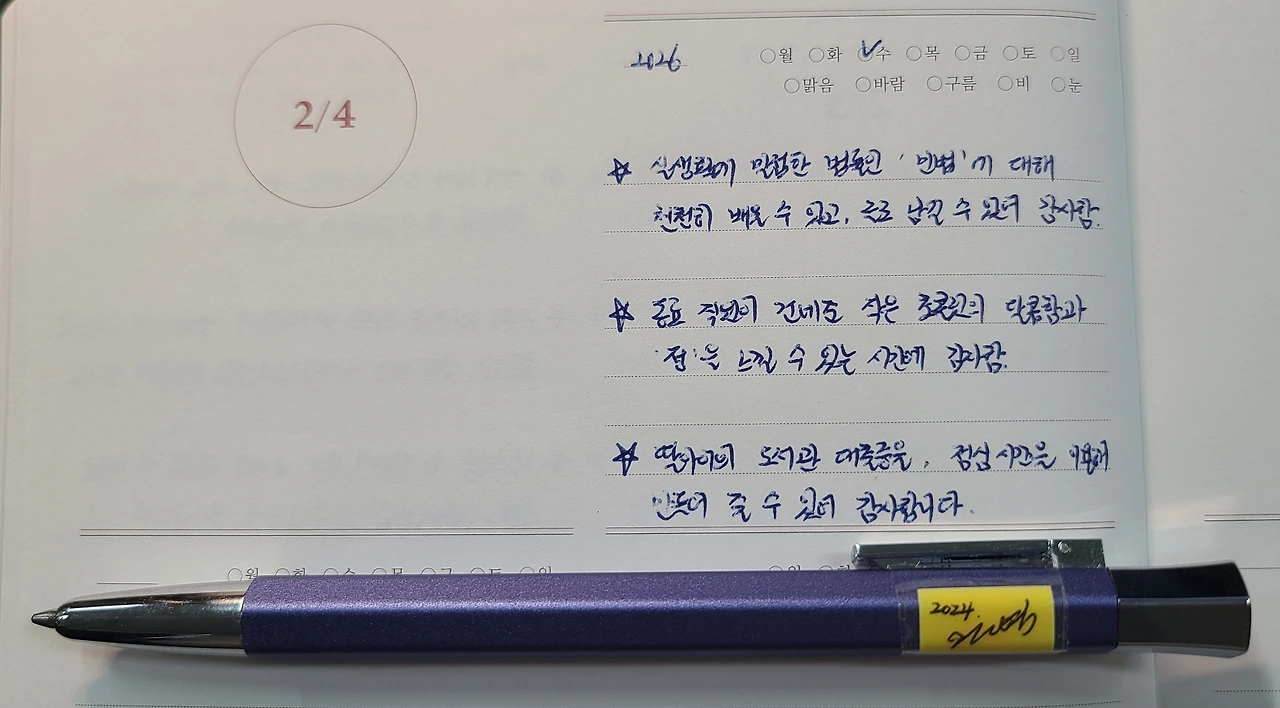 2/4
2026 ○월 ○화 ○수 ○목 ○금 ○토 ○일
○맑음 ○바람 ○구름 ○비 ○눈
☆ 실생활에 밀접한 법률인 '민법'에 대해
천천히 배울 수 있고, 글로 남길 수 있어 감사함.
☆ 동료 직원이 건네준 작은 초콜릿의 달콤함과
'정'을 느낄 수 있는 시간에 감사함.
☆ 딸아이의 도서관 대출증을, 점심시간을 이용해
만들어 줄 수 있어 감사합니다.
○월 ○화 ○수 ○목 ○금 ○토 ○일
2024.